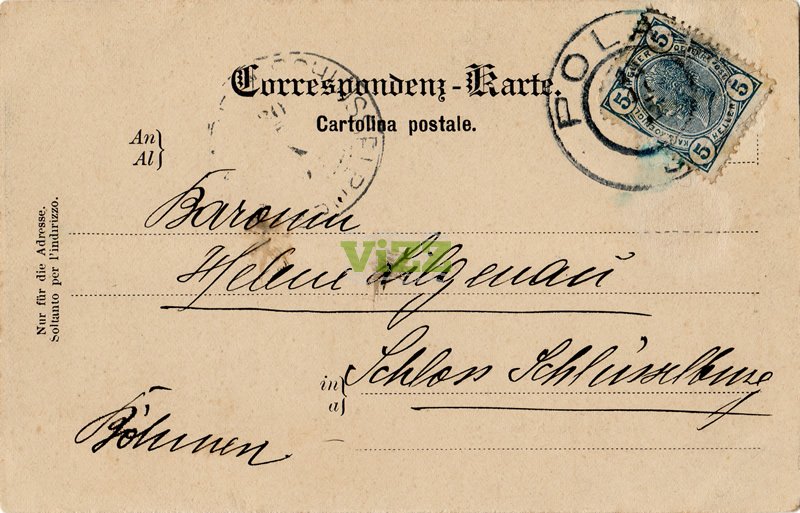 Correspondenz-Karte.
Cartolina postale.
POLA
5
5
5
HELLER
An
Al
Baronin
ViZZ
Helene Lilgenau
in
a
Schloss Schlüsselburg
Böhmen
Nur für die Adresse.
Soltanto per l'indirizzo.